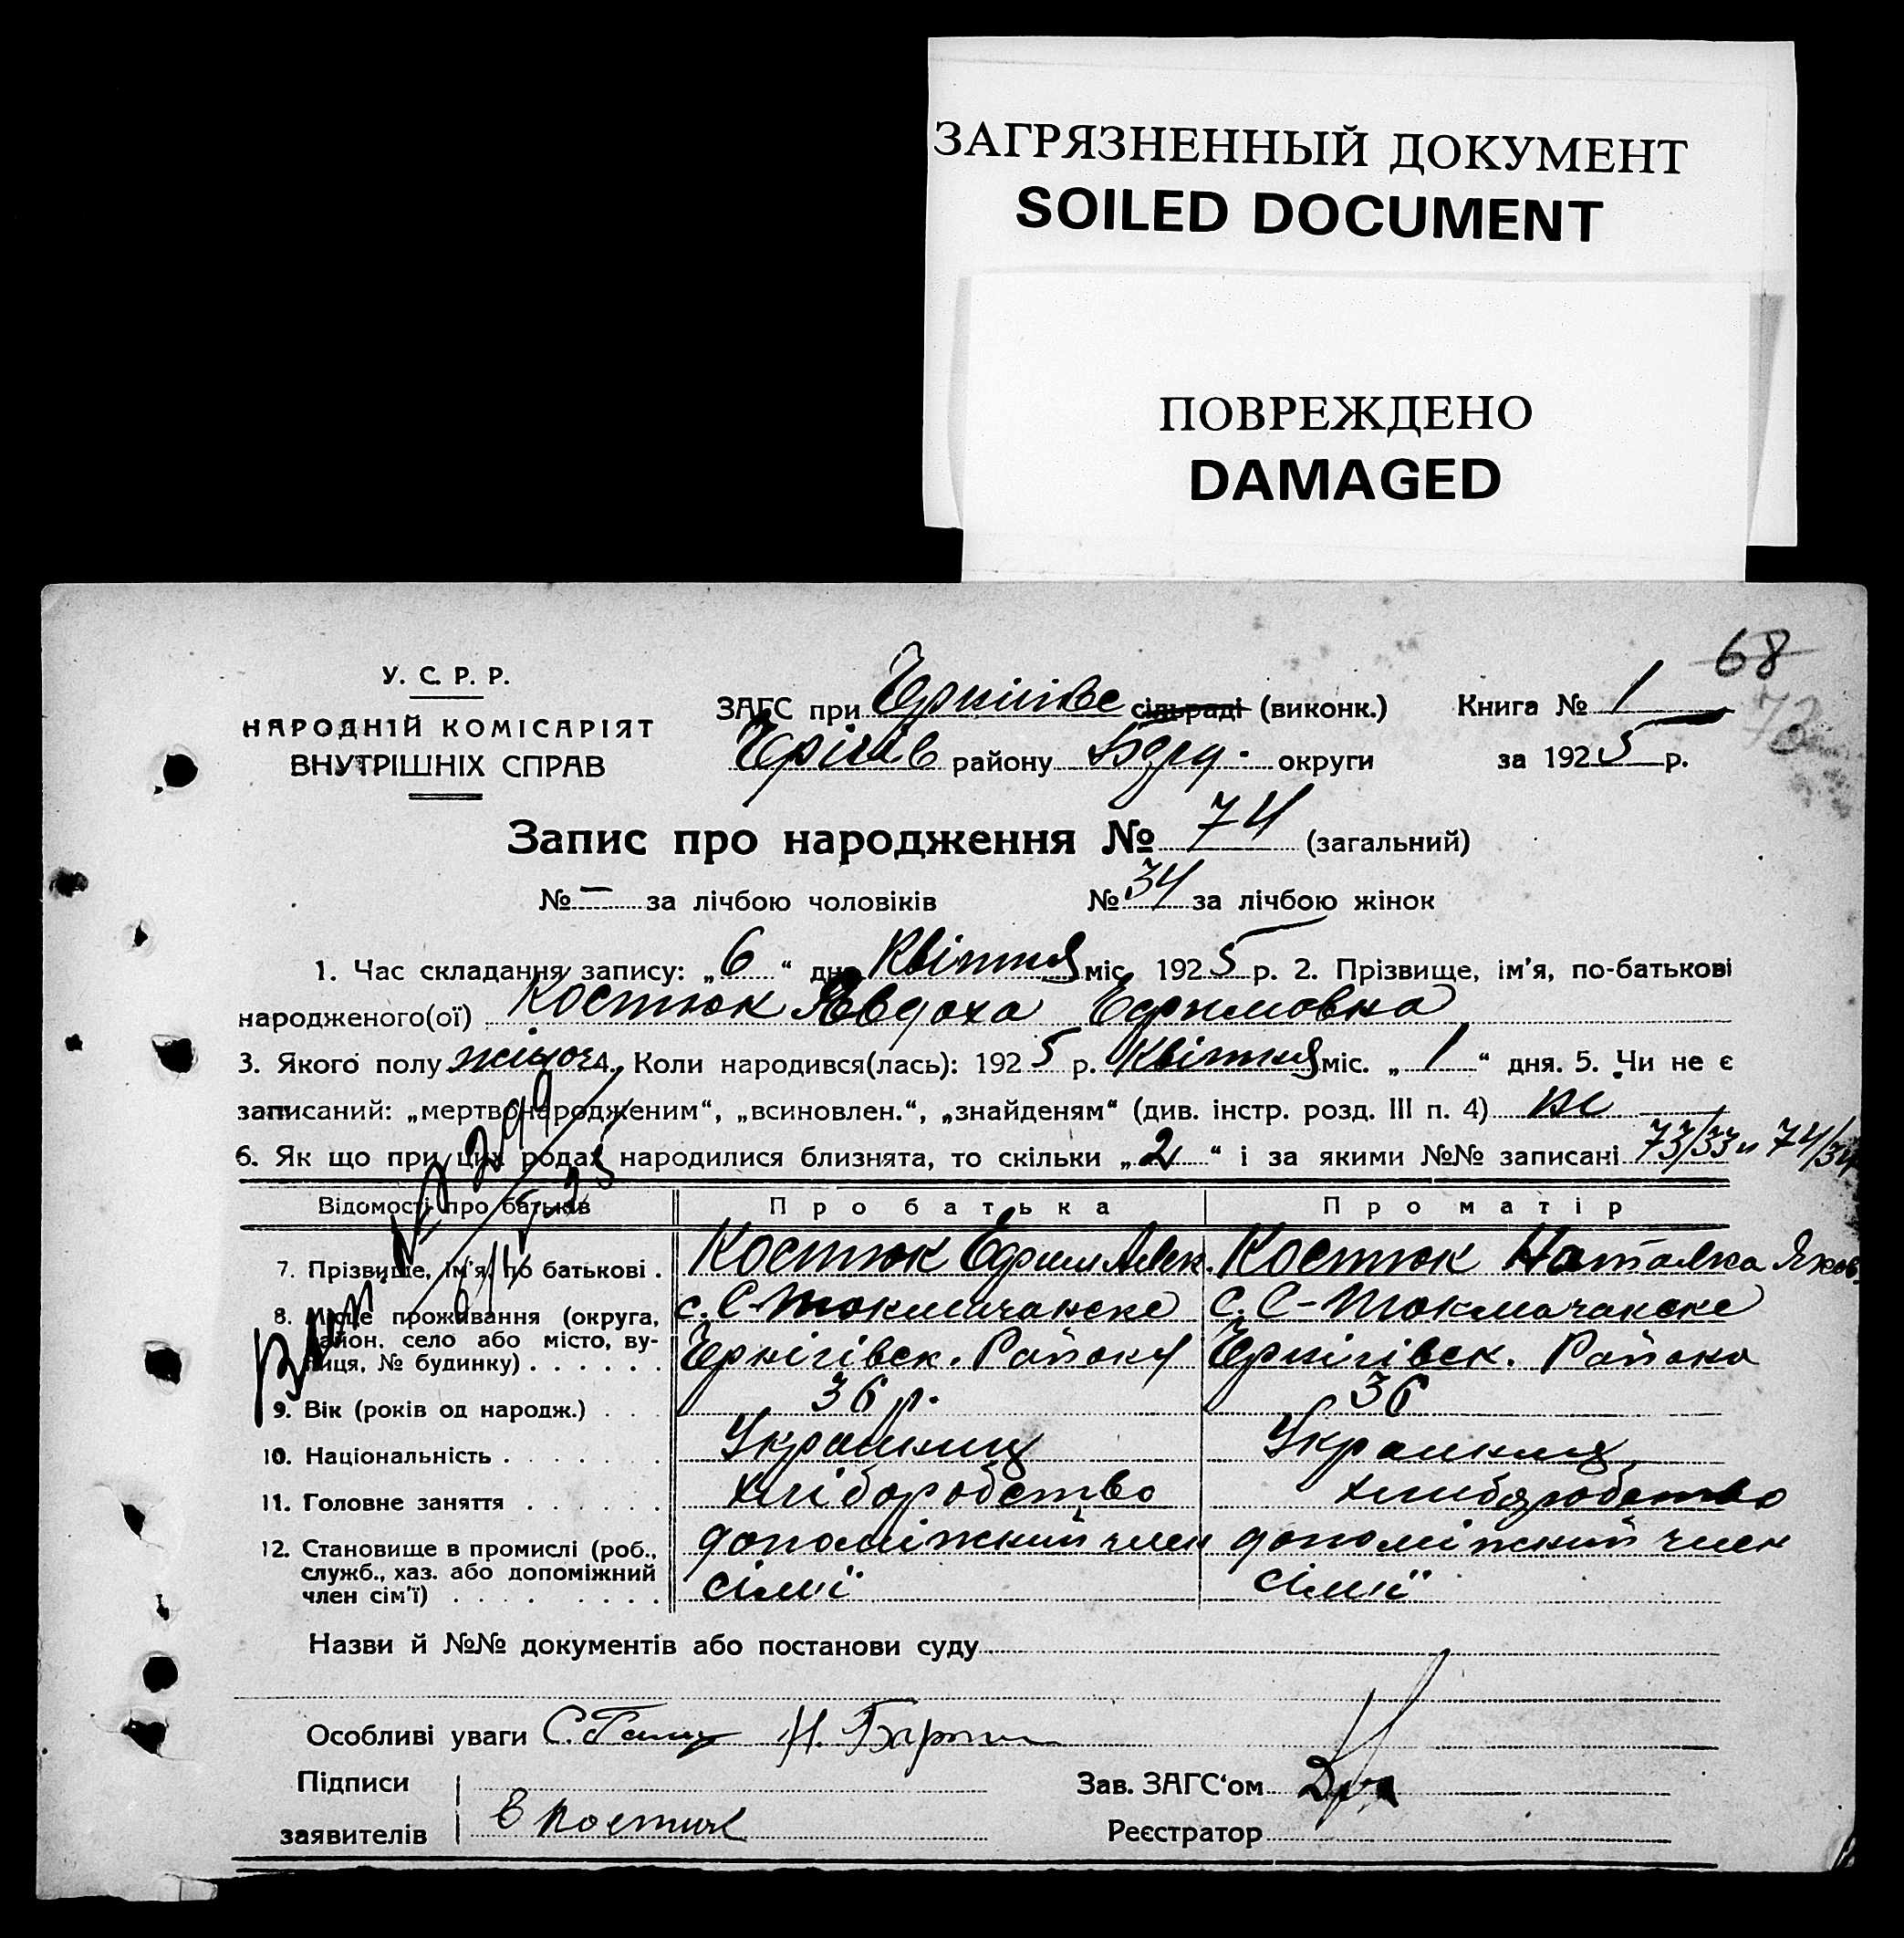 ЗАГРЯЗНЕННЫЙ ДОКУМЕНТ
SOILED DOCUMENT
ПОВРЕЖДЕНО
DAMAGED
68
73
У. С. Р. Р.
НАРОДНІЙ КОМІСАРІЯТ
ВНУТРІШНІХ СПРАВ
ЗАГС при сільраді (виконк.) Книга № 1
району округи за 1925 р.
Запис про народження № 74 (загальний)
№ — за лічбою чоловіків № 34 за лічбою жінок
1. Час складання запису: „6“ дня Квітня міс. 1925 р. 2. Прізвище, ім'я, по-батькові
народженого(ої) Костюк Явдоха Ефимовна
3. Якого полу жіноч. 4. Коли народився(лась): 1925 р. Квітня міс. „1“ дня. 5. Чи не є
записаний: „мертвонародженим“, „всиновлен.“, „знайденям“ (див. інстр. розд. III п. 4) не
6. Як що при цих родах народилися близнята, то скільки „2“ і за якими №№ записані 73/33 и 74/34
Відомості про батьків Про батька Про матір
7. Прізвище, ім'я, по батькові . Костюк Ефим Алек. Костюк Наталка Яков.
8. Місце проживання (округа, с. С-Токмачанске с. С-Токмачанске
район, село або місто, ву-
лиця, № будинку) . . . . . . Чернігівск. Району Чернігівск. Района
9. Вік (років од народж.) . . . 36 р. 36
10. Національність . . . . . . . Украинец Украинця
11. Головне заняття . . . . . . хліборобство хлиборобство
12. Становище в промислі (роб., допоміжний член допоміжний член
служб., хаз. або допоміжний
член сім'ї) . . . . . . . . сімії сімії
Назви й №№ документів або постанови суду
Особливі уваги
Підписи Зав. ЗАГС'ом
заявителів Е Костюк Реєстратор